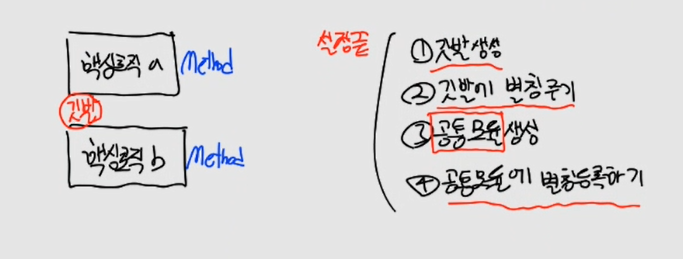 핵심로직 a Method
깃발
핵심로직 b Method
설정끝
① 깃발생성
② 깃발에 별칭주기
③ 공통모듈 생성
④ 공통모듈에 별칭등록하기